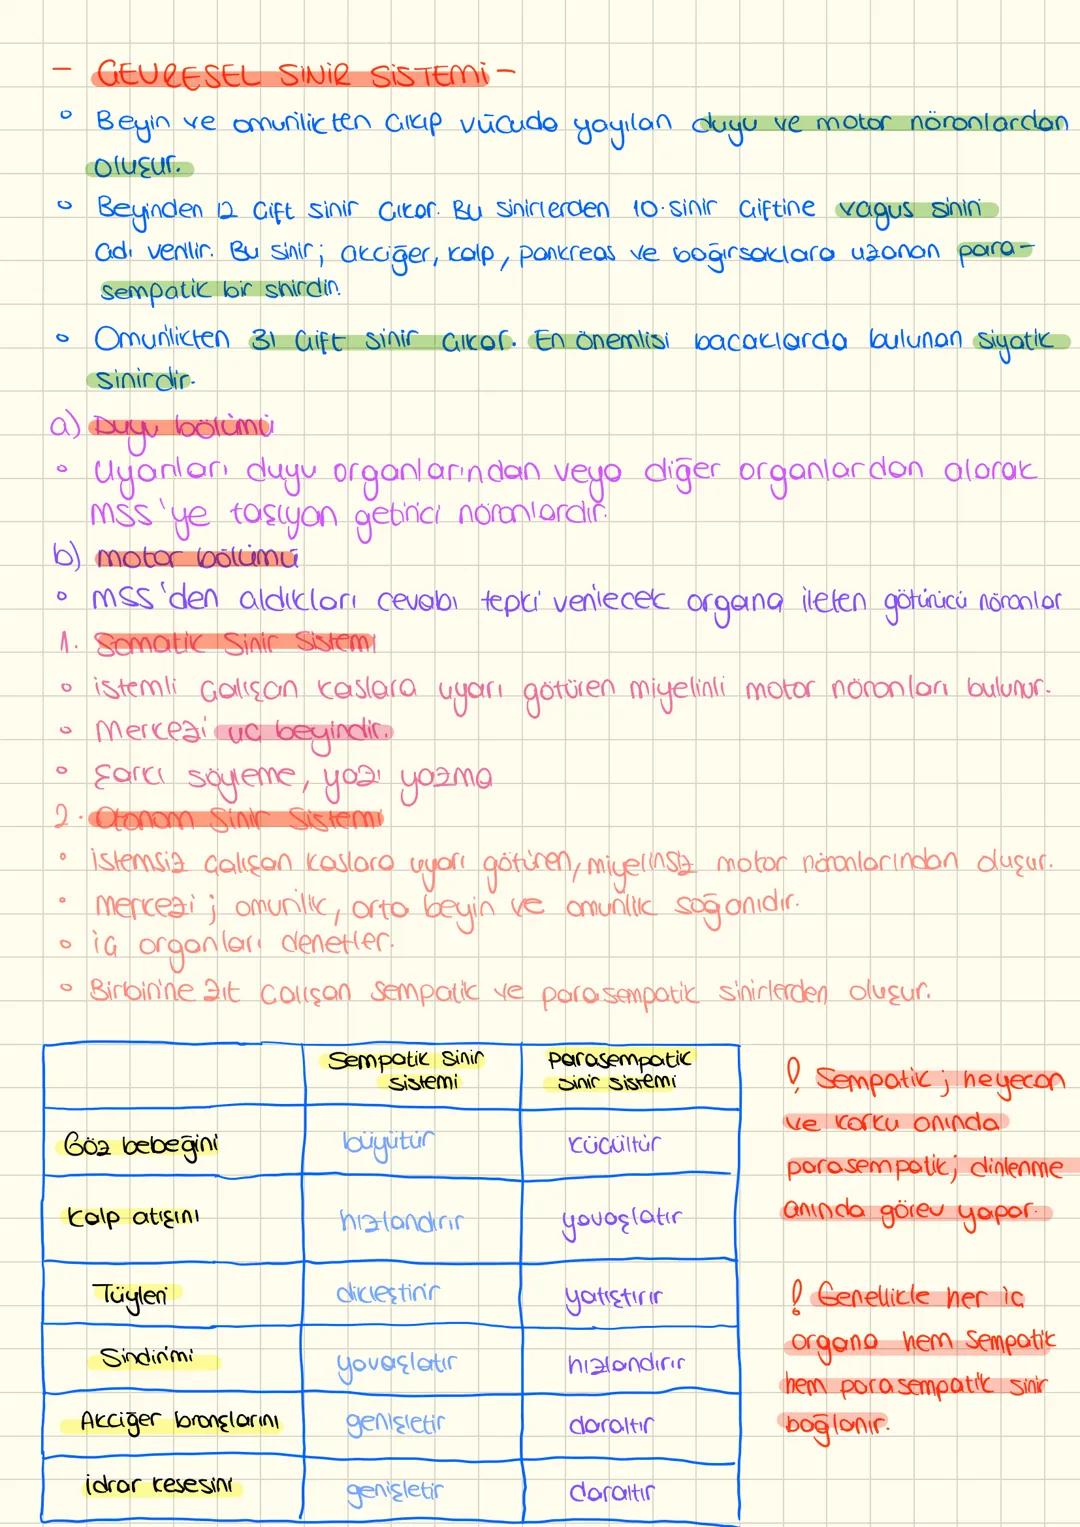 - ÇEVRESEL SİNİR SİSTEMİ -
Beyin ve omurilikten çıkıp vücuda yayılan duyu ve motor nöronlardan
oluşur.
Beyinden 12 çift sinir çıkar. Bu sinirlerden 10. sinir çiftine vagus siniri
adı verilir. Bu sinir; akciğer, kalp, pankreas ve bağırsaklara uzanan para-
sempatik bir sinirdir.
Omurilikten 31 çift sinir çıkar. En önemlisi bacaklarda bulunan siyatik
sinirdir.
a) Duyu bölümü
Uyarıları duyu organlarından veya diğer organlardan alarak
MSS'ye taşıyan getirici nöronlardır.
b) motor bölümü
MSS'den aldıkları cevabı tepki verilecek organa ileten götürücü nöronlar
1. Somatik Sinir Sistemi
istemli çalışan kaslara uyarı götüren miyelinli motor nöronları bulunur.
Merkezi uç beyindir.
Şarkı söyleme, yazı yazma
2. Otonom Sinir Sistemi
istemsiz çalışan kaslara uyarı götüren, miyelinsiz motor nöronlarından oluşur.
merkezi; omurilik, orta beyin ve omurilik soğanıdır.
iç organları denetler.
Birbirine zıt çalışan sempatik ve parasempatik sinirlerden oluşur.
Sempatik Sinir sistemi
parasempatik sinir sistemi
Göz bebeğini büyütür küçültür
Kalp atışını hızlandırır yavaşlatır
Tüyleri dikleştirir yatıştırır
Sindirimi yavaşlatır hızlandırır
Akciğer bronşlarını genişletir daraltır
idrar kesesini genişletir daraltır
! Sempatik; heyecan
ve korku anında
parasempatik; dinlenme
anında görev yapar.
! Genellikle her iç
organa hem sempatik
hem parasempatik sinir
bağlanır.